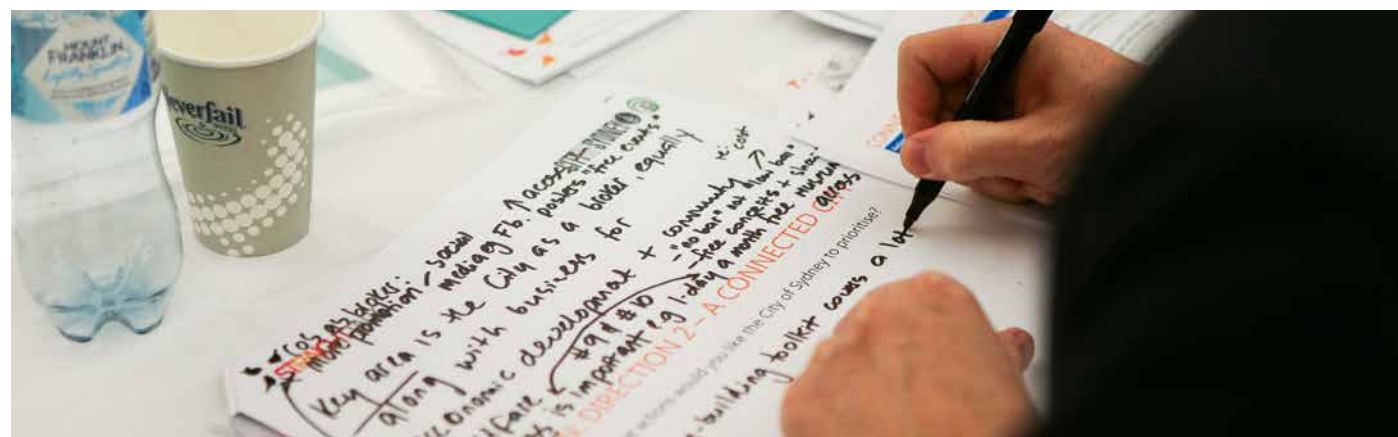 MOUNT
FRANKLIN
Lightly Sparkling
everfail
SYDNEY
CoS as broker:
more promotion - social
media eg Fb. ↑ access
posters "free events"
Key area is the City as a broker, equally
along with business for
economic development + community
re: cost
"no bar" not "low bar"
#9 & #10
free concerts +
is important eg 1-day a month free museum
access
DIRECTION 2 – A CONNECTED CI
actions would you like the City of Sydney to prioritise?
-building toolkit covers a lot
CONNE